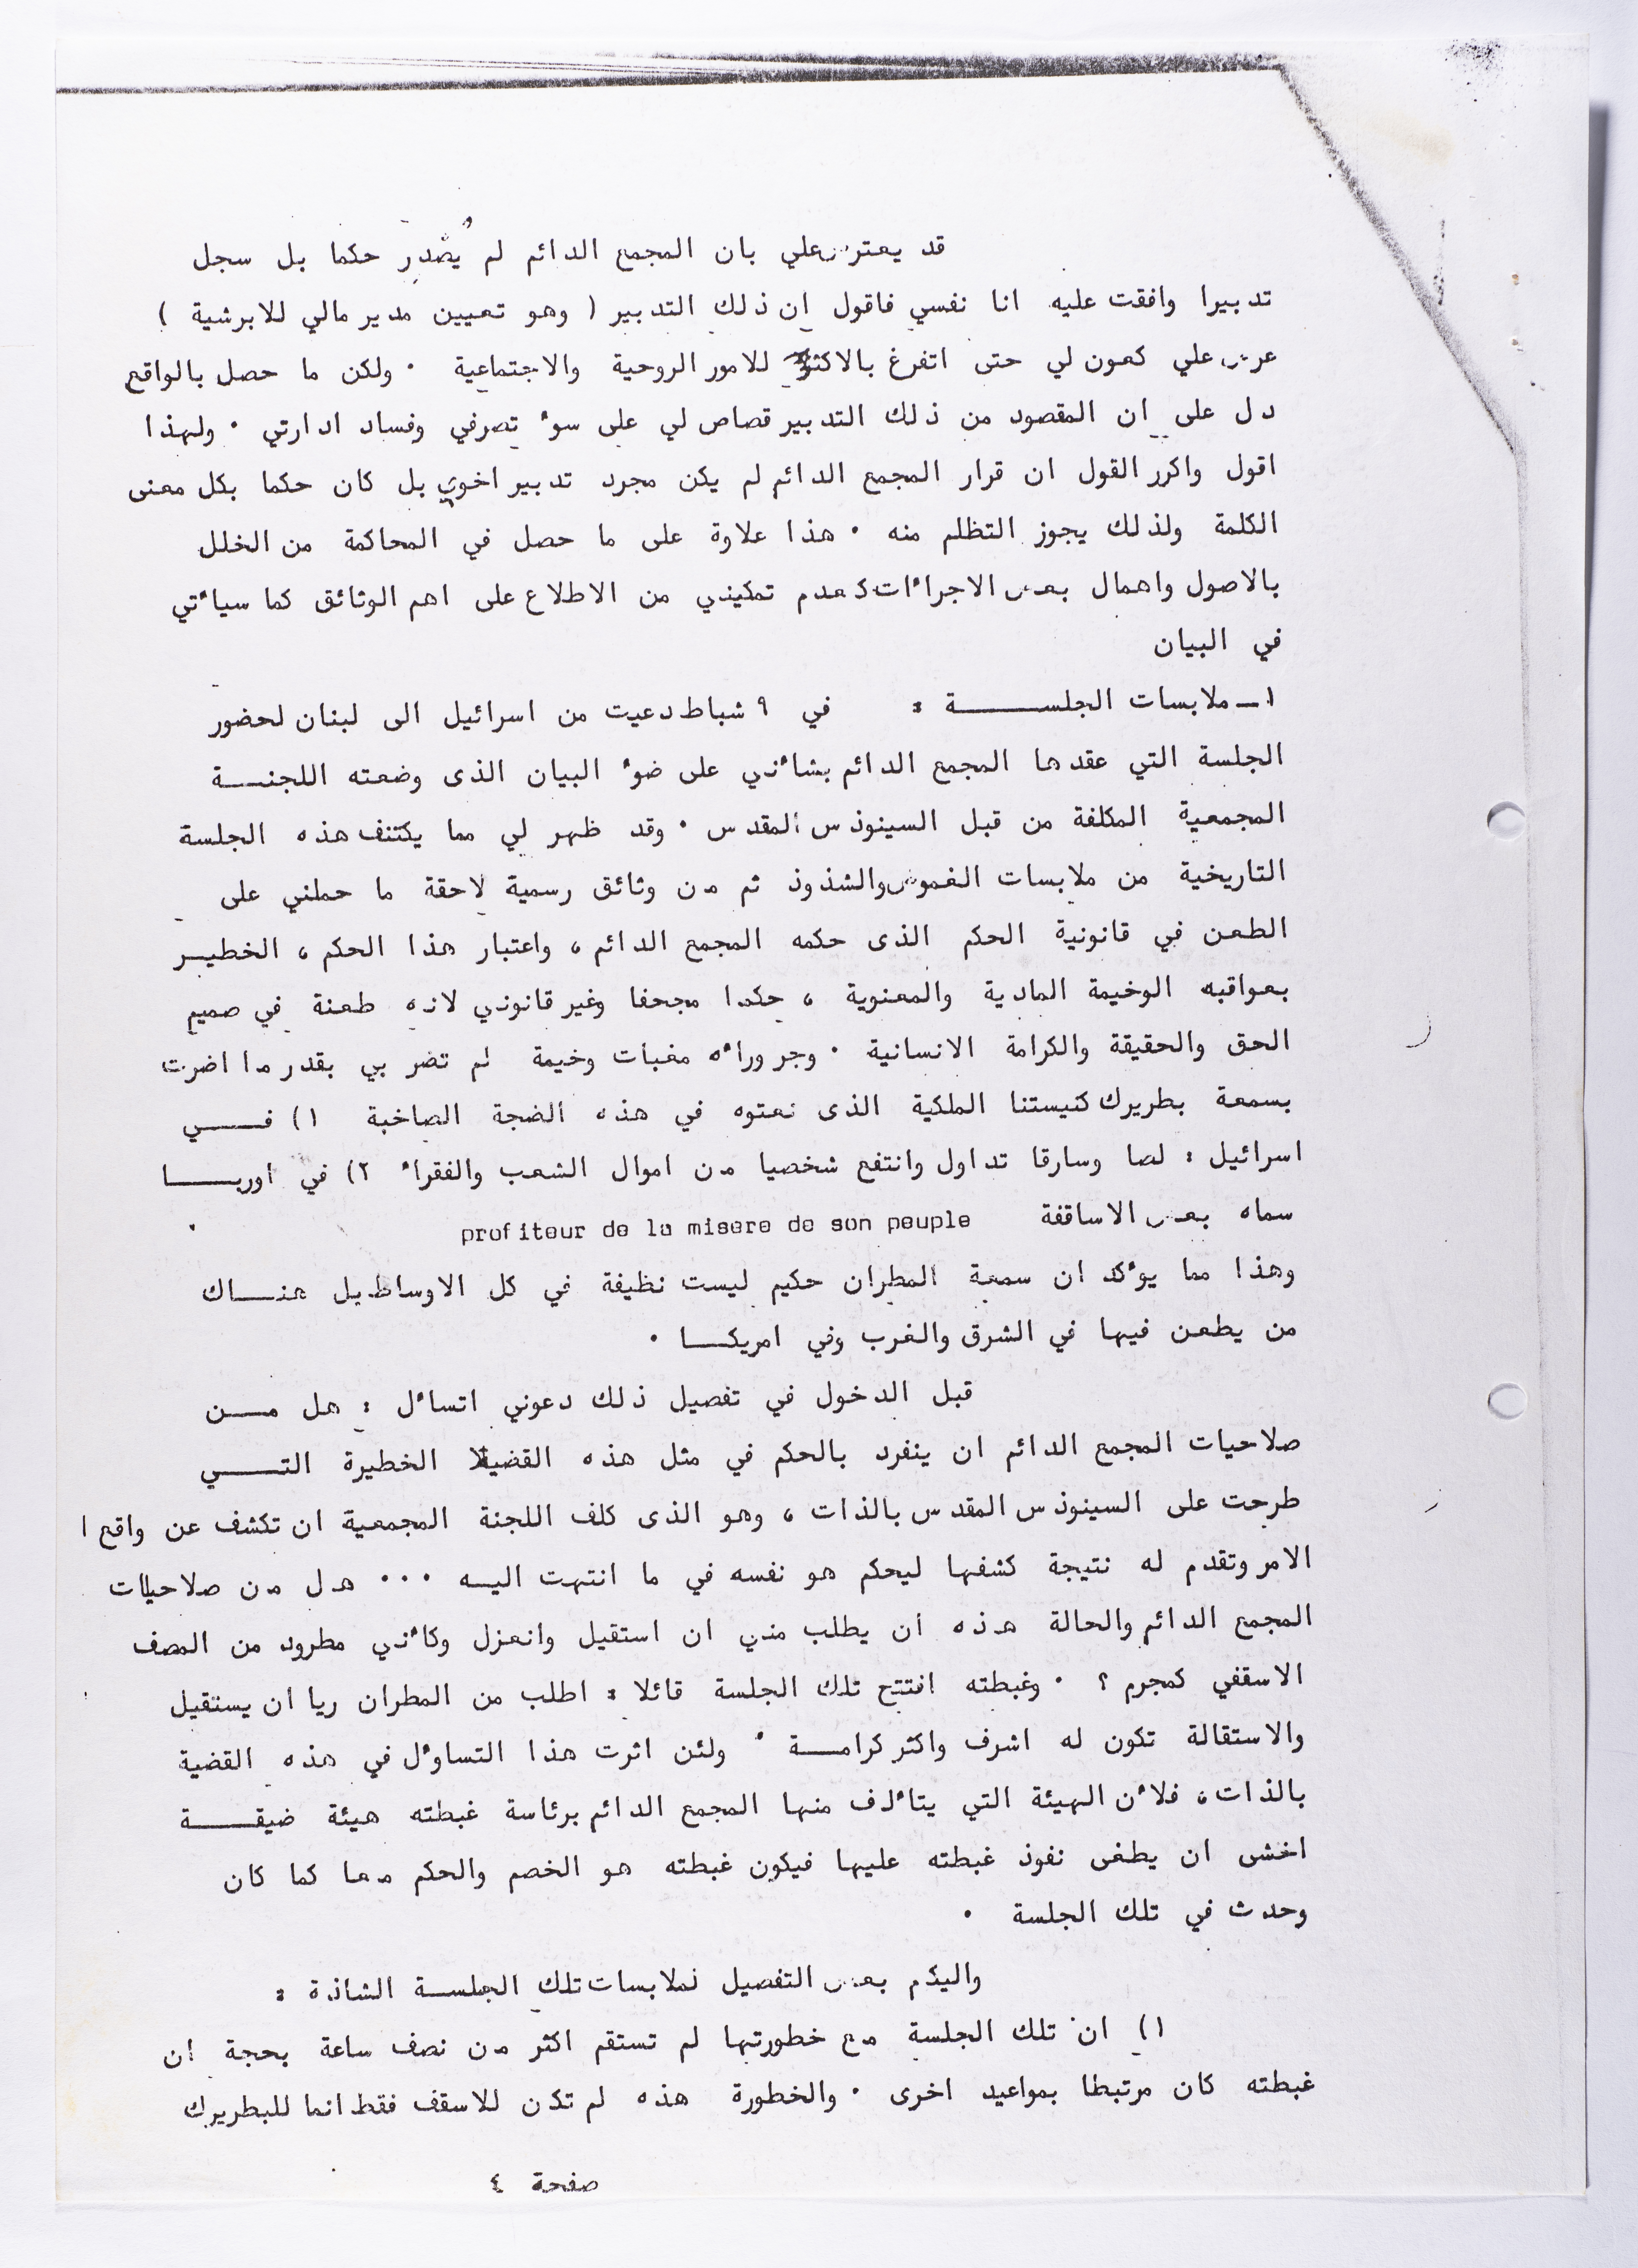 قد يعترض علي بان المجمع الدائم لم يُصْدِر حكما بل سجل
تدبيرا وافقت عليه انا نفسي فاقول ان ذلك التدبير ( وهو تعيين مدير مالي للابرشية )
عرض علي كعون لي حتى اتفرغ بالاكثر للامور الروحية والاجتماعية ٠ ولكن ما حصل بالواقع
دل على ان المقصود من ذلك التدبير قصاص لي على سوء تصرفي وفساد ادارتي ٠ ولهذا
اقول واكرر القول ان قرار المجمع الدائم لم يكن مجرد تدبير اخوي بل كان حكما بكل معنى
الكلمة ولذلك يجوز التظلم منه ٠ هذا علاوة على ما حصل في المحاكمة من الخلل
بالاصول واهمال بعض الاجراءات كعدم تمكيني من الاطلاع على اهم الوثائق كما سيأتي
في البيان
١ــ ملابسات الجلســـــة : في ٩ شباط دعيت من اسرائيل الى لبنان لحضور
الجلسة التي عقدها المجمع الدائم بشأني على ضوء البيان الذى وضعته اللجنـــة
المجمعية المكلفة من قبل السينوذس المقدس ٠ وقد ظهر لي مما يكتنف هذه الجلسة
التاريخية من ملابسات الغموض والشذوذ ثم من وثائق رسمية لاحقة ما حملني على
الطعن في قانونية الحكم الذى حكمه المجمع الدائم ، واعتبار هذا الحكم ، الخطيــر
بعواقبه الوخيمة المادية والمعنوية ، حكما مجحفا وغير قانوني لانه طعنة في صميم
الحق والحقيقة والكرامة الانسانية ٠ وجر وراءه مغبات وخيمة لم تضر بي بقدر ما اضرت
بسمعة بطريرك كنيستنا الملكية الذى نعتوه في هذه الضجة الصاخبة ١) فـــــي
اسرائيل : لصا وسارقا تداول وانتفع شخصيا من اموال الشعب والفقراء ٢) في اوربـــــا
سماه بعض الاساقفة profiteur de la misere de son peuple ٠
وهذا مما يؤكد ان سمعة المطران حكيم ليست نظيفة في كل الاوساط بل هنـــاك
من يطعن فيها في الشرق والغرب وفي امريكـــا ٠
قبل الدخول في تفصيل ذلك دعوني اتساءل : هل مـــن
صلاحيات المجمع الدائم ان ينفرد بالحكم في مثل هذه القضية الخطيرة التـــــي
طرحت على السينوذس المقدس بالذات ، وهو الذى كلف اللجنة المجمعية ان تكشف عن واقع ا
الامر وتقدم له نتيجة كشفها ليحكم هو نفسه في ما انتهت اليــه ٠٠٠ هل من صلاحيات
المجمع الدائم والحالة هذه ان يطلب مني ان استقيل وانعزل وكأني مطرود من المصف
الاسقفي كمجرم ؟ ٠ وغبطته افتتح تلك الجلسة قائلا : اطلب من المطران ريا ان يستقيل
والاستقالة تكون له اشرف واكثر كرامـــة ٠ ولئن اثرت هذا التساؤل في هذه القضية
بالذات ، فلأن الهيئة التي يتألف منها المجمع الدائم برئاسة غبطته هيئة ضيقـــــة
اخشى ان يطغى نفوذ غبطته عليها فيكون غبطته هو الخصم والحكم معا كما كان
وحدث في تلك الجلسة ٠
واليكم بعض التفصيل لملابسات تلك الجلســة الشاذة :
١) ان تلك الجلسة مع خطورتها لم تستقم اكثر من نصف ساعة بحجة ان
غبطته كان مرتبطا بمواعيد اخرى ٠ والخطورة هذه لم تكن للاسقف فقط انما للبطريرك
صفحة ٤